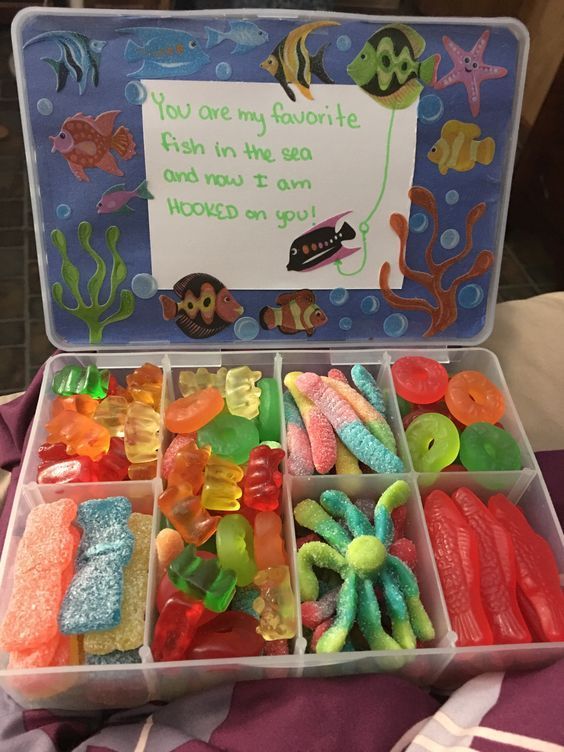 You are my favorite
fish in the sea
and now I am
HOOKED on you!